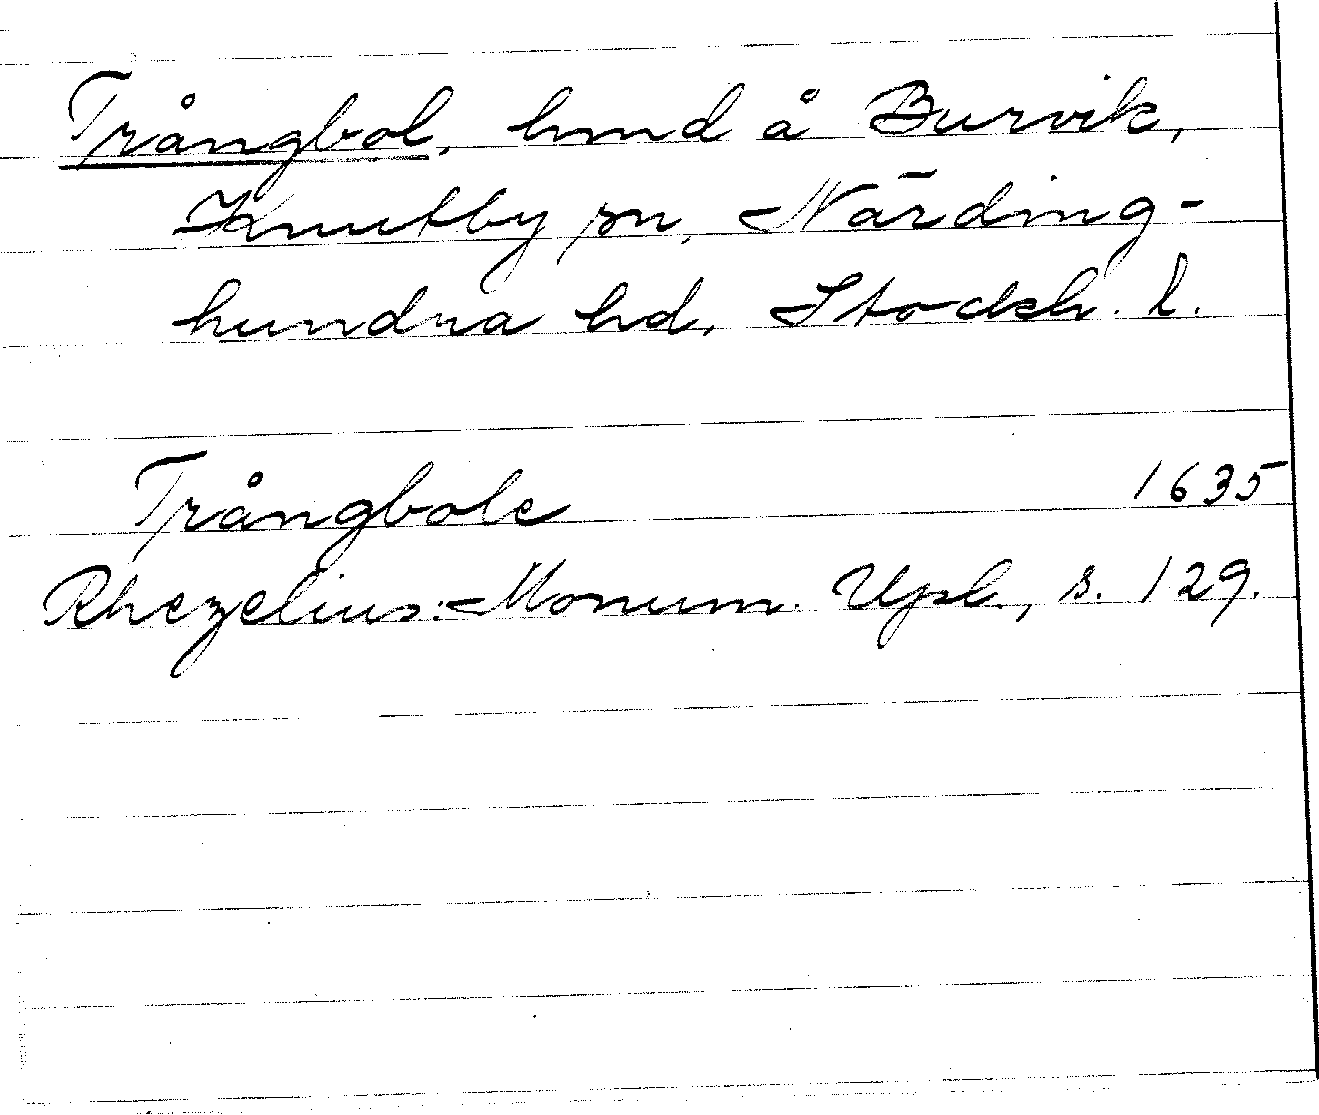 Trångbol, hmd å Burvik,
Knutby sn, Närding-
hundra hd, Stocksh. l.
Trångbole 1635
Rhezelius: Monum. Upl., s. 129.